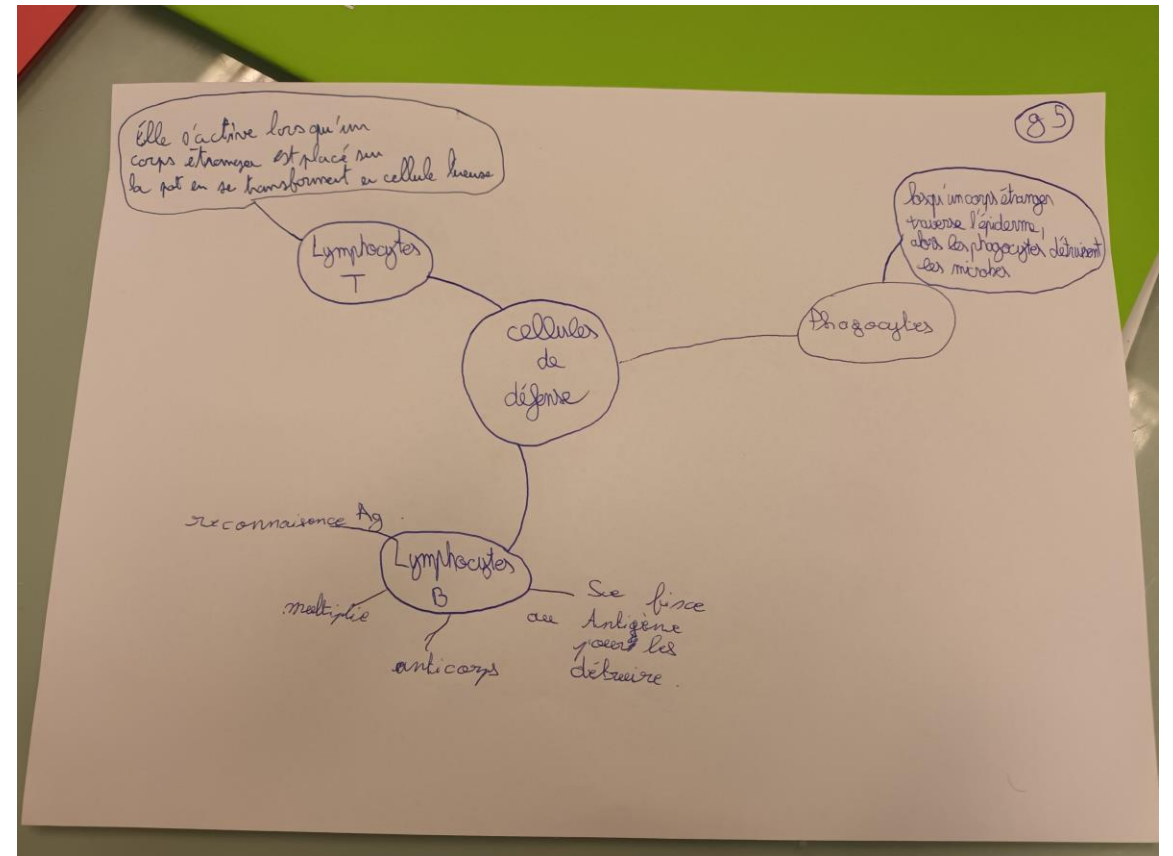 g 5
Elle s'active lorsqu'un
corps étranger est placé sur
la en se transforment en cellule tueuse
Lymphocytes
T
lorsqu'un corps étranger
traverse l'épiderme,
alors les phagocytes détruisent
les microbes
Phagocytes
cellules
de
défense
reconnaisence Ag.
Lymphocytes
B
multiplie
anticorps
Se fixce
au Antigène
pour les
détruire.